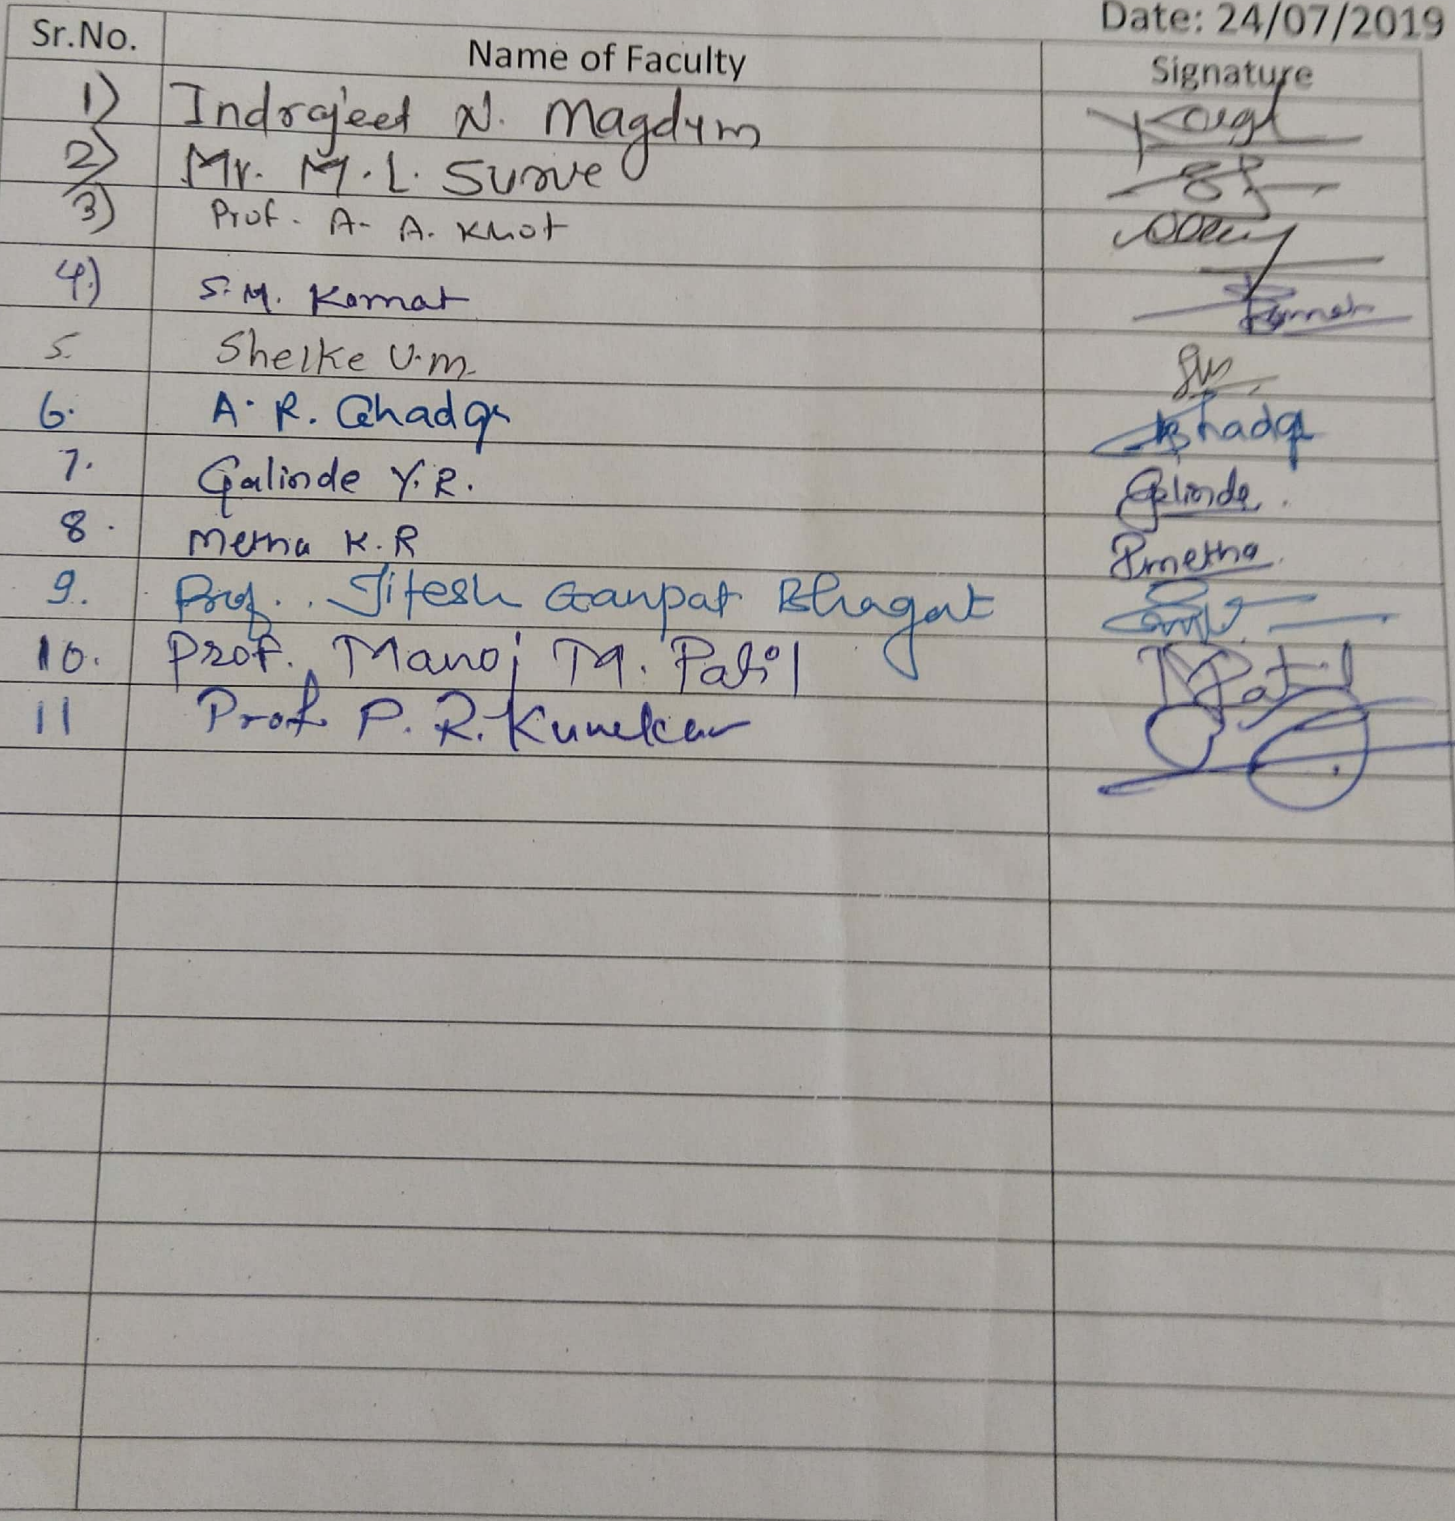 Date: 24/07/2019
Sr.No. Name of Faculty Signature
1) Indrajeet N. Magdum
2) Mr. M.L. Surve
3) Prof. A. A. Khot
4.) S.M. Kamat
5. Shelke U.M.
6. A.R. Ghadge
7. Galinde Y.R. Galinde.
8. Metha K.R Pmetha.
9. Prof. Jitesh Ganpat Bhagat
10. Prof. Manoj M. Patil MPatil
11 Prof P.R.